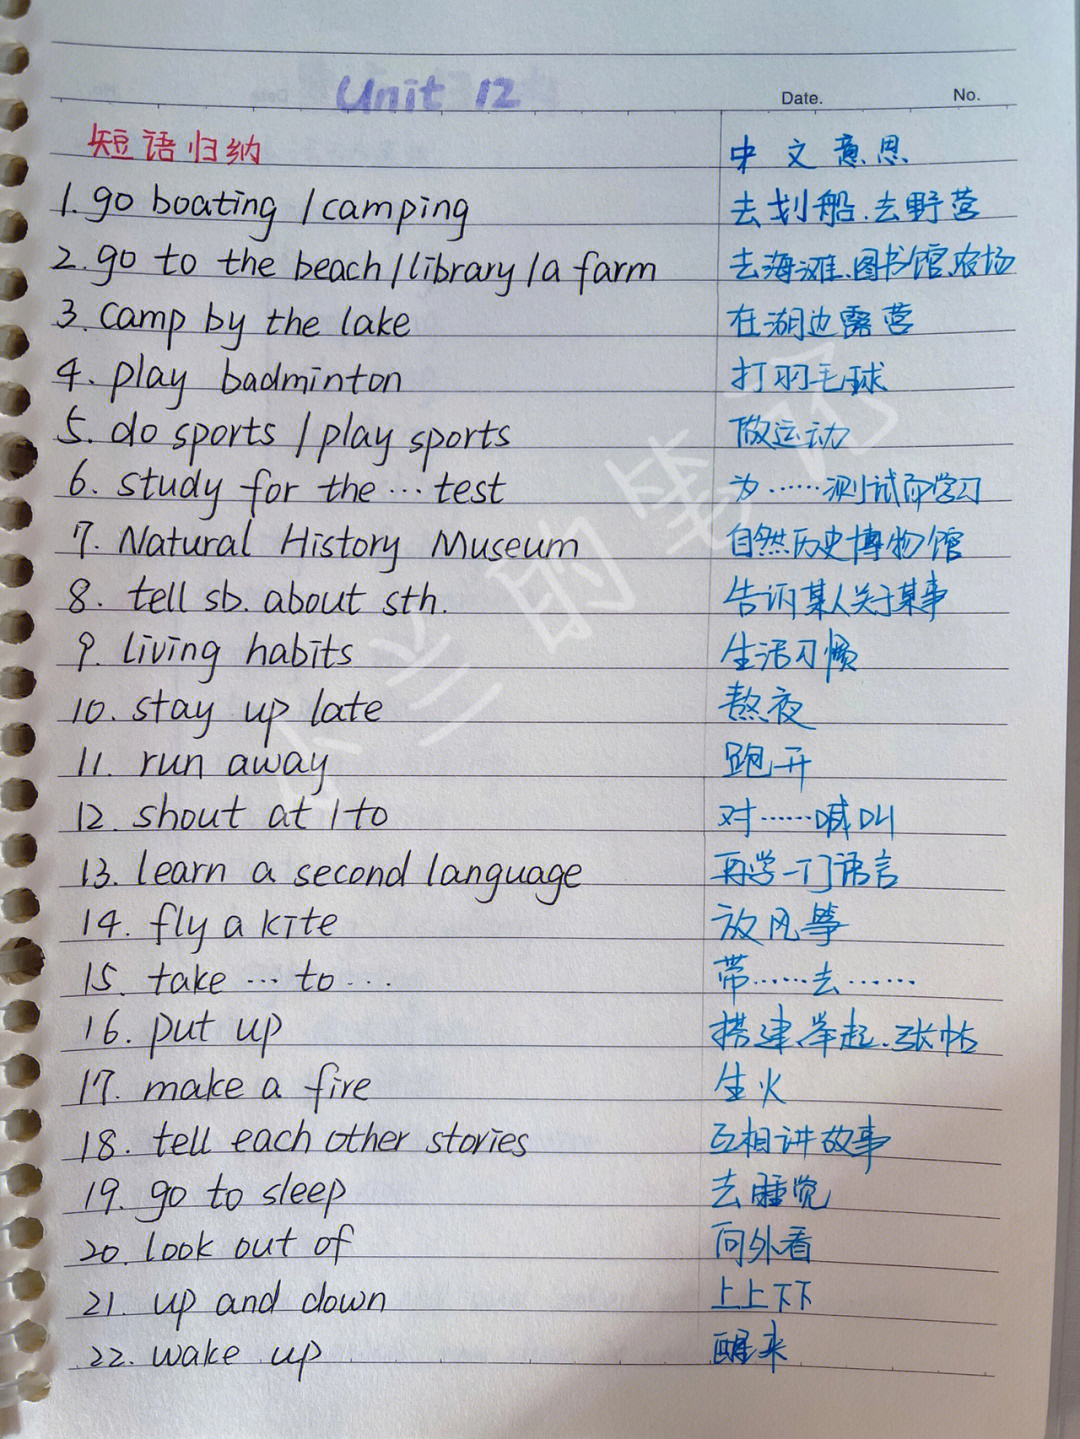 Unit 12
Date. No.
短语归纳 中文意思
1. go boating / camping 去划船、去野营
2. go to the beach / library / a farm 去海滩、图书馆、农场
3. camp by the lake 在湖边露营
4. play badminton 打羽毛球
5. do sports / play sports 做运动
6. study for the … test 为……测试而学习
7. Natural History Museum 自然历史博物馆
8. tell sb. about sth. 告诉某人关于某事
9. living habits 生活习惯
10. stay up late 熬夜
11. run away 跑开
12. shout at / to 对……喊叫
13. learn a second language 再学一门语言
14. fly a kite 放风筝
15. take … to … 带……去……
16. put up 搭建、举起、张帖
17. make a fire 生火
18. tell each other stories 互相讲故事
19. go to sleep 去睡觉
20. look out of 向外看
21. up and down 上上下下
22. wake up 醒来